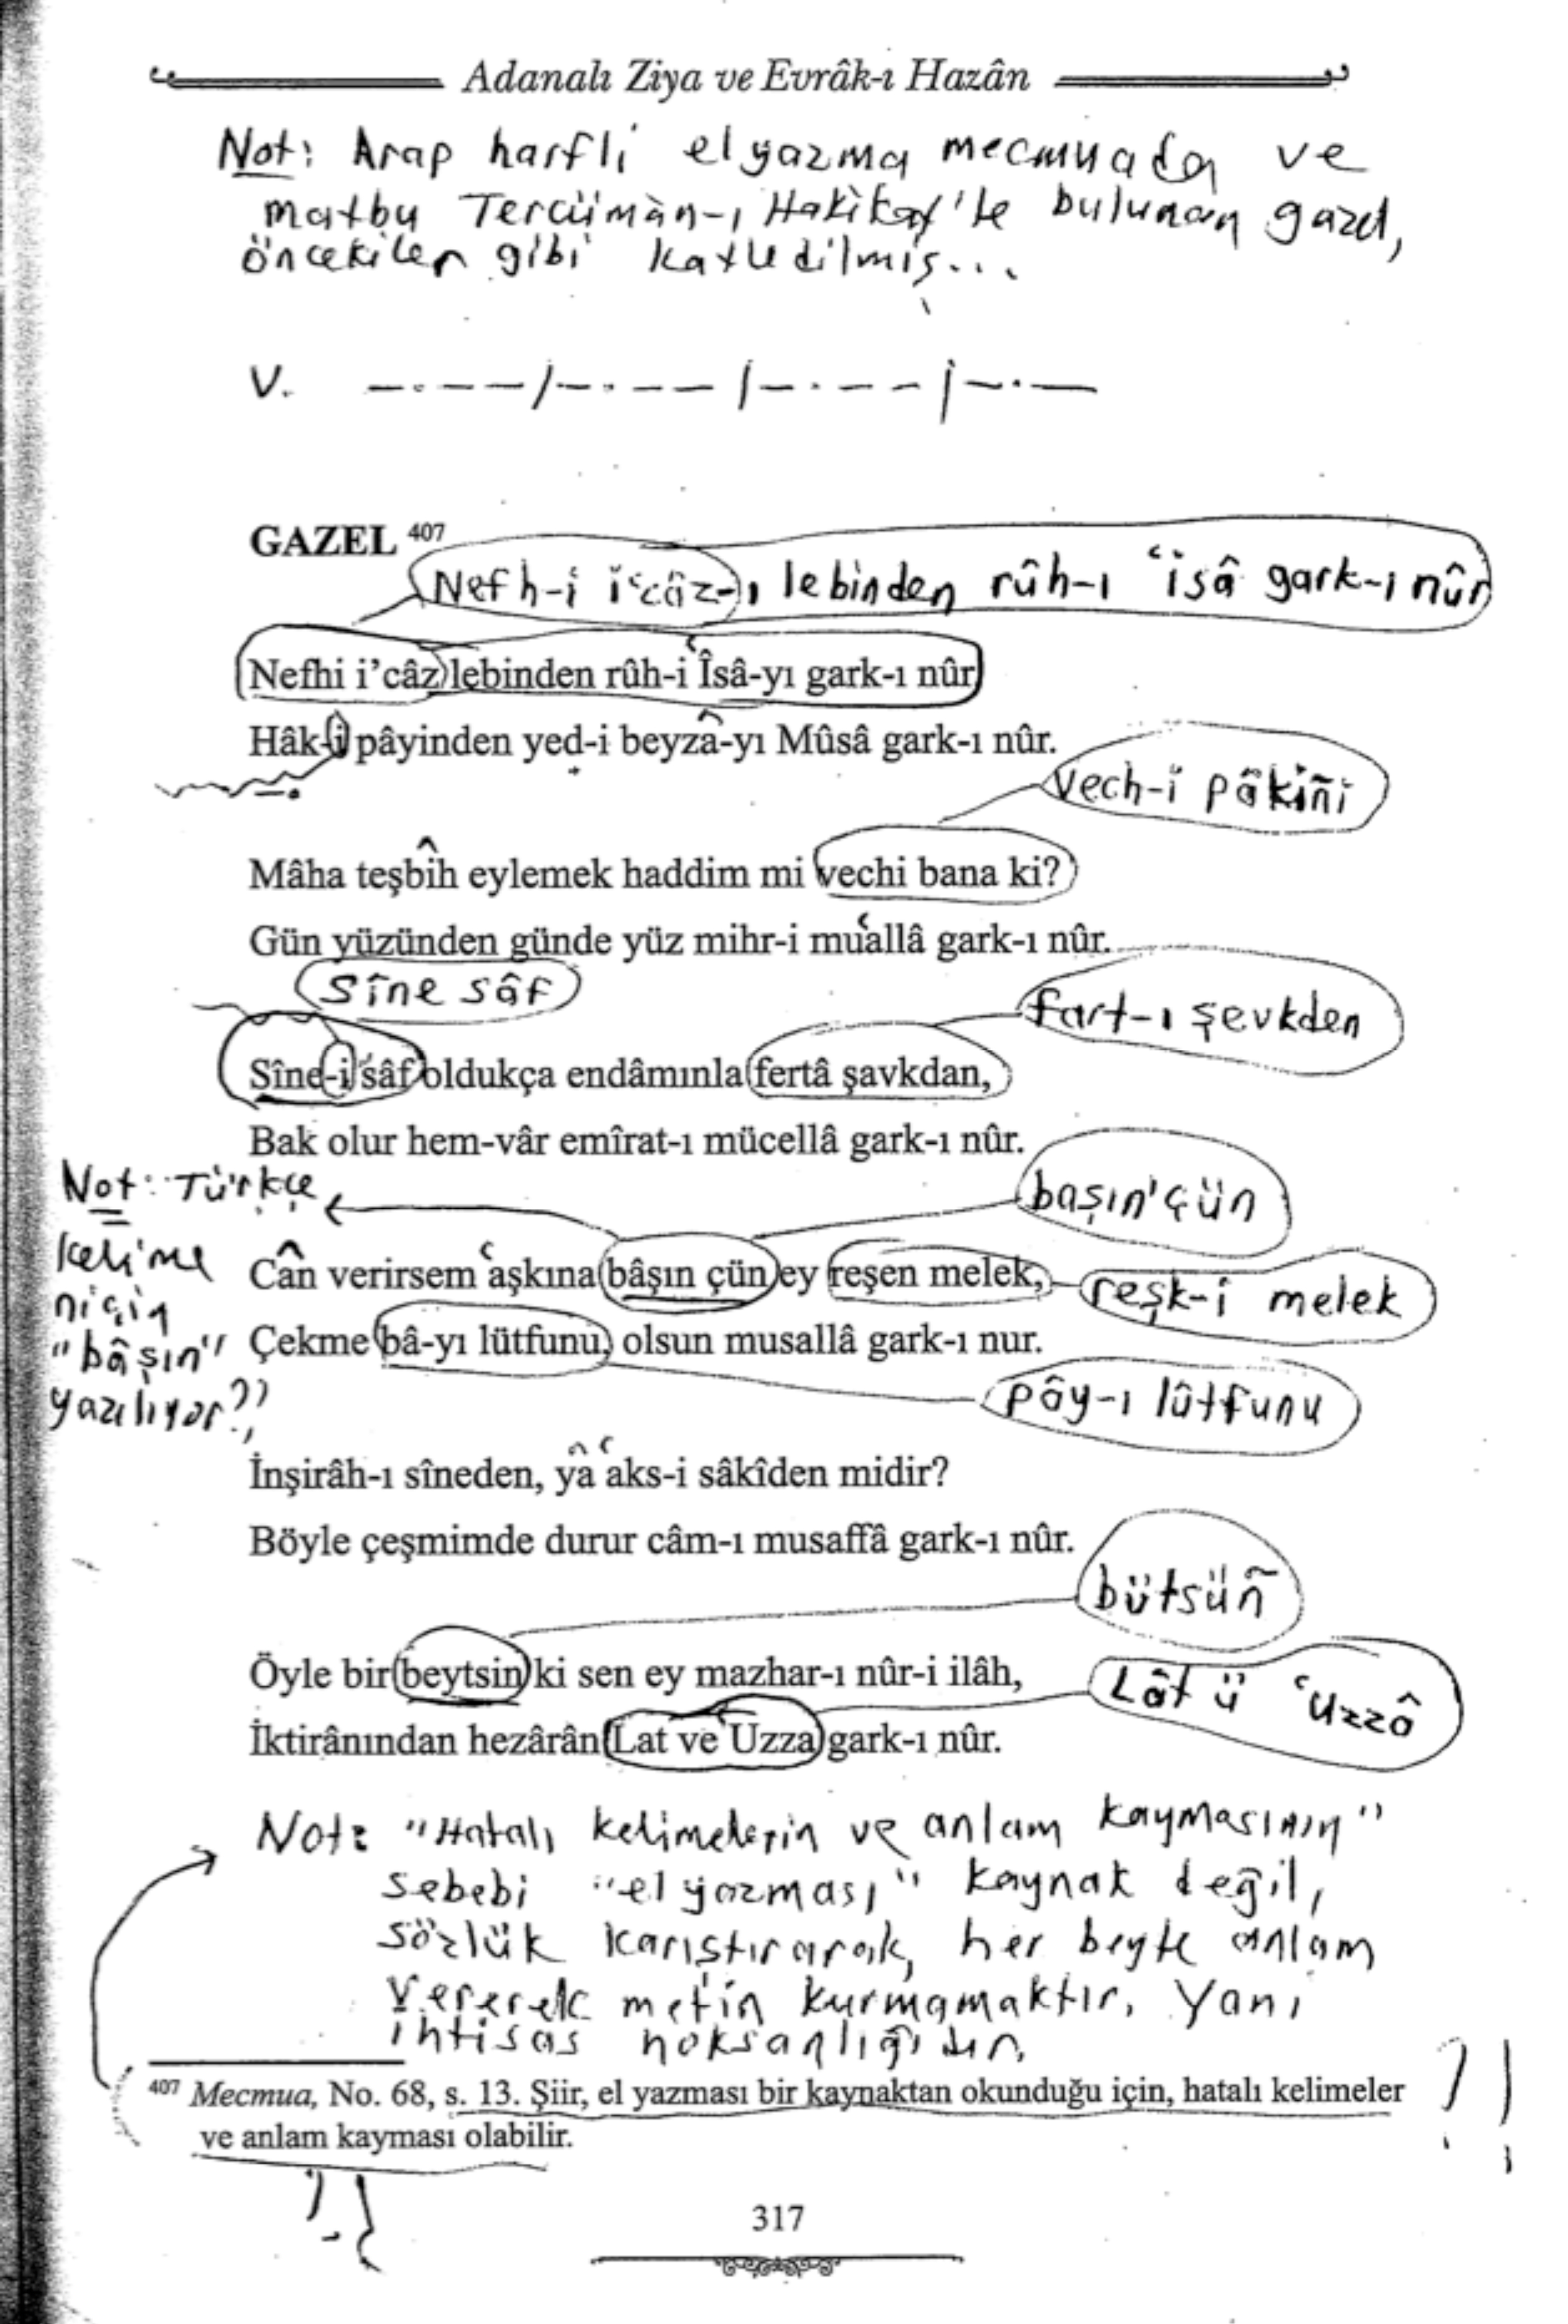 Adanalı Ziya ve Evrâk-ı Hazân
Not: Arap harfli elyazma mecmuada ve
matbu Tercümân-ı Hakikat'te bulunan gazel,
öncekiler gibi katledilmiş...
V. — . — — / — . — — / — . — — / — . —
GAZEL 407
Nefh-i i'câz-ı lebinden rûh-ı 'isâ gark-ı nûr
Nefhi i'câz lebinden rûh-i Îsâ-yı gark-ı nûr
Hâk-i pâyinden yed-i beyzâ-yı Mûsâ gark-ı nûr.
vech-i pâkiñi
Mâha teşbîh eylemek haddim mi vechi bana ki?
Gün yüzünden günde yüz mihr-i mu'allâ gark-ı nûr.
sîne sâf
fart-ı şevkden
Sîne-i sâf oldukça endâmınla fertâ şavkdan,
Bak olur hem-vâr emîrat-ı mücellâ gark-ı nûr.
başın'çün
Not: Türkçe
kelime
niçin
"bâşın"
yazılıyor??
Cân verirsem 'aşkına bâşın çün ey reşen melek,
reşk-i melek
Çekme bâ-yı lütfunu, olsun musallâ gark-ı nur.
pây-ı lûtfunu
İnşirâh-ı sîneden, yâ 'aks-i sâkîden midir?
Böyle çeşmimde durur câm-ı musaffâ gark-ı nûr.
bütsüñ
Öyle bir beytsin ki sen ey mazhar-ı nûr-i ilâh,
Lât ü 'Uzzâ
İktirânından hezârân Lat ve 'Uzza gark-ı nûr.
Not: "Hatalı kelimelerin ve anlam kaymasının"
sebebi "elyazması" kaynak değil,
sözlük karıştırarak, her beyte anlam
vererek metin kurmamaktır. Yani
ihtisas noksanlığıdır.
407 Mecmua, No. 68, s. 13. Şiir, el yazması bir kaynaktan okunduğu için, hatalı kelimeler ?!
ve anlam kayması olabilir.
?!
317